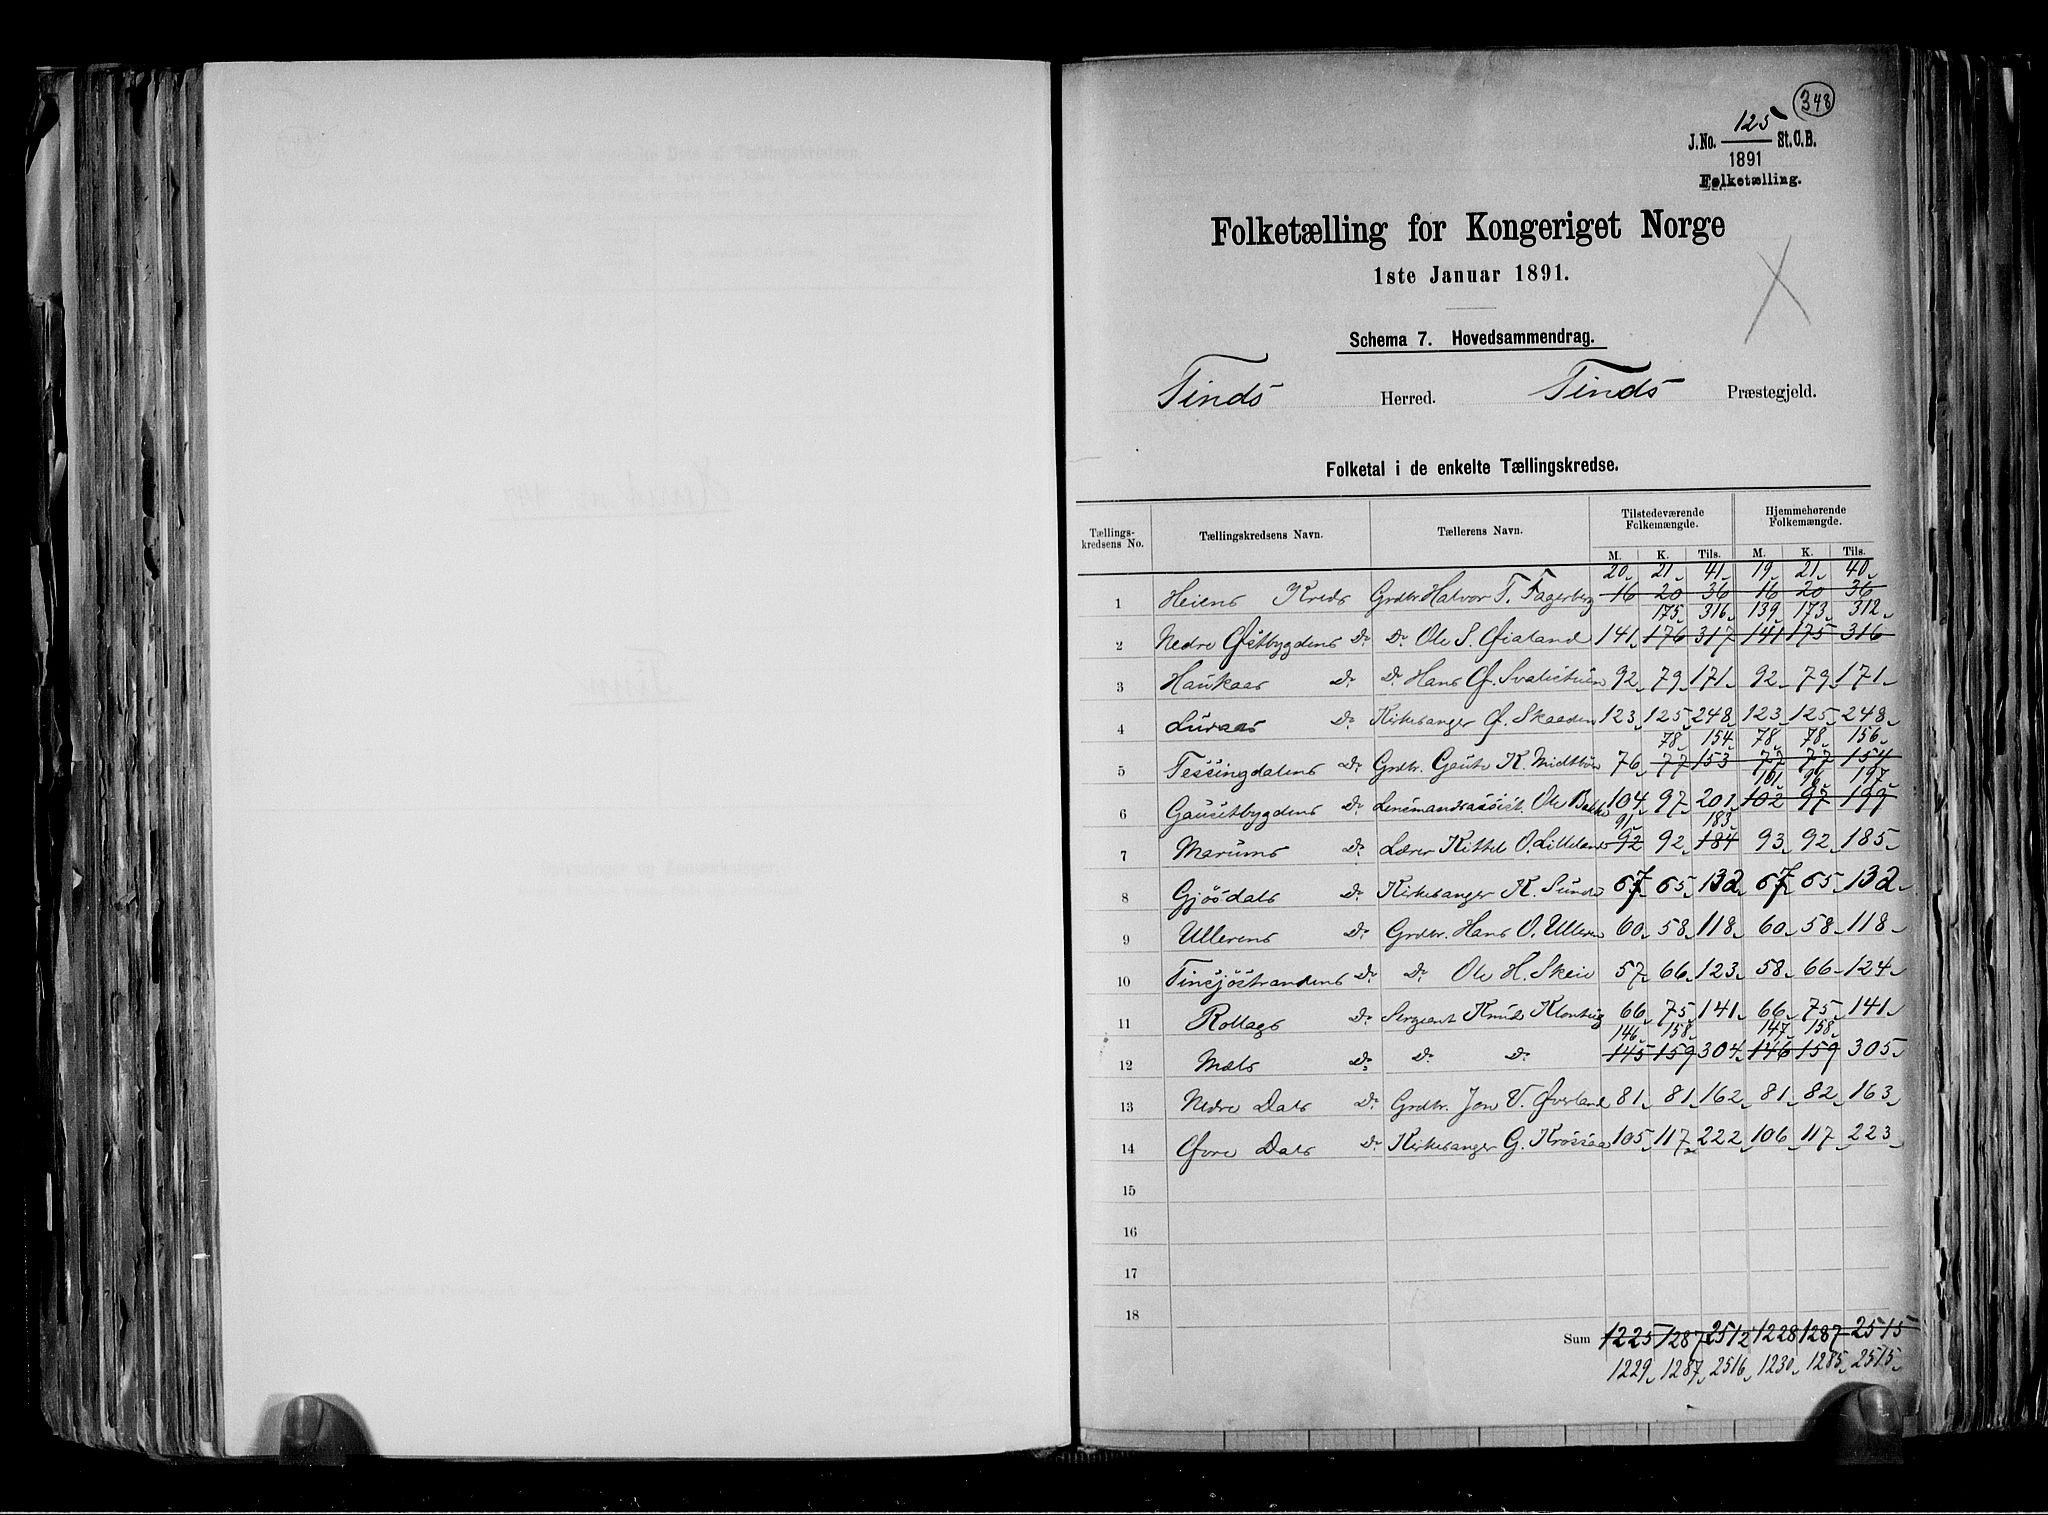 348
J. No. 125 St. C. B.
1891
Folketælling.
Folketælling for Kongeriget Norge
1ste Januar 1891.
Schema 7. Hovedsammendrag.
Tinds Herred. Tinds Præstegjeld.
Folketal i de enkelte Tællingskredse.
Tællings-kredsens No. Tællingskredsens Navn. Tællerens Navn. Tilstedeværende Folkemængde. Hjemmehørende Folkemængde.
M. K. Tils. M. K. Tils.
20 21 41 19 21 40
1 Heiens Kreds Grdbr. Halvor T. Fagerberg 16 20 36 16 20 36
175 316 139 173 312
2 Nedre Østbygdens Do Do Ole S. Øialand 141 176 317 141 175 316
3 Haukaas Do Do Hans Ø. 92 79 171 92 79 171
4 Luraas Do Kirkesanger Ø. Skaaden 123 125 248 123 125 248
78 154 78 78 156
5 Tessingdalens Do Grdbr. Gaute K. Midtbøen 76 77 153 77 77 154
101 96 197
6 Gausetbygdens Do Lensmandsassist. Ole Bakke 104 97 201 102 97 199
91 183
7 Marums Do Lærer Kittel O. Lilleland 92 92 184 93 92 185
8 Gjösdals Do Kirkesanger K. Sunde 67 65 132 67 65 132
9 Ullerens Do Grdbr. Hans O. Ulleren 60 58 118 60 58 118
10 Tinsjöstrandens Do Do Ole H. Skeie 57 66 123 58 66 124
11 Rollags Do Sergeant Knud 66 75 141 66 75 141
146 158 147 158
12 Mæls Do Do Do 145 159 304 146 159 305
13 Nedre Dals Do Grdbr. Jon V. Øverland 81 81 162 81 82 163
14 Øvre Dals Do Kirkesanger G. Krossaa 105 117 222 106 117 223
15
16
17
18
Sum 1225 1287 2512 1228 1287 2515
1229 1287 2516 1230 1285 2515